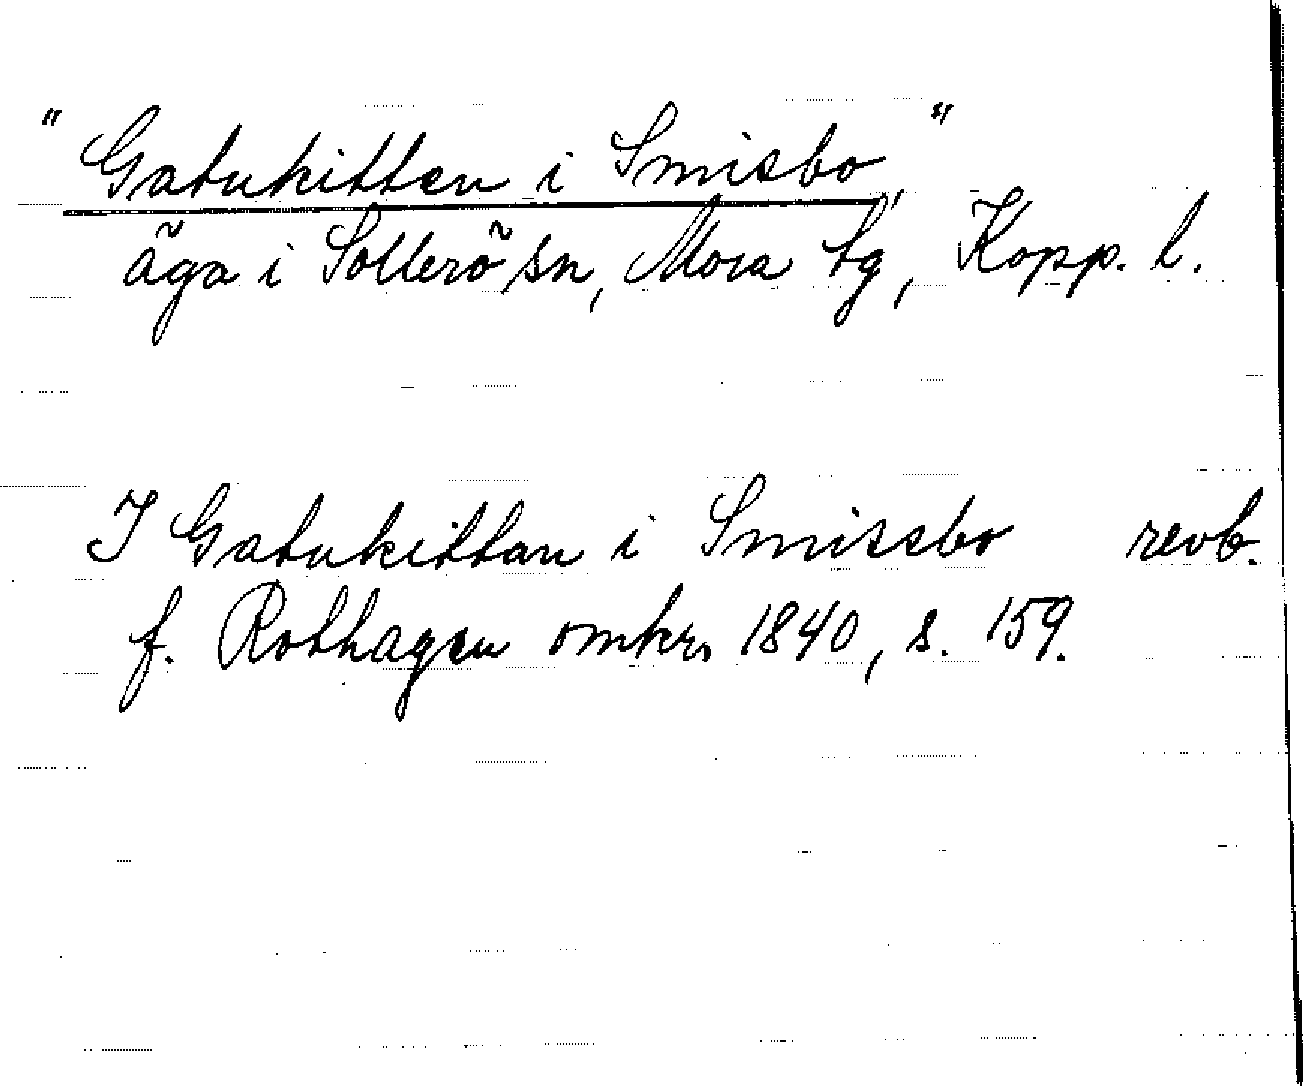 "Gatukitten i Smisbo,"
äga i Sollerö sn, Mora tg, Kopp. l.
I Gatukittan i Smissbo revb.
f. Rothagen omkr. 1840, s. 159.